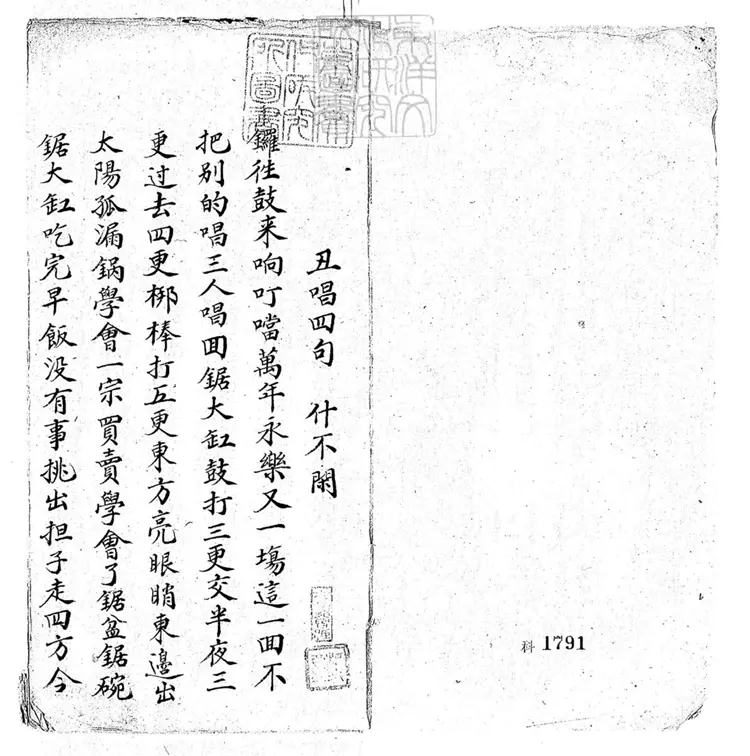 丑唱四句　什不閑
鑼往鼓来响叮噹萬年永樂又一塲這一囬不
把别的唱三人唱囬鋸大缸鼓打三更交半夜三
更过去四更梆棒打五更東方亮眼睄東邉出
太陽孤漏鍋學會一宗買賣學會了鋸盆鋸碗
鋸大缸吃完早飯没有事挑出担子走四方今
科 1791